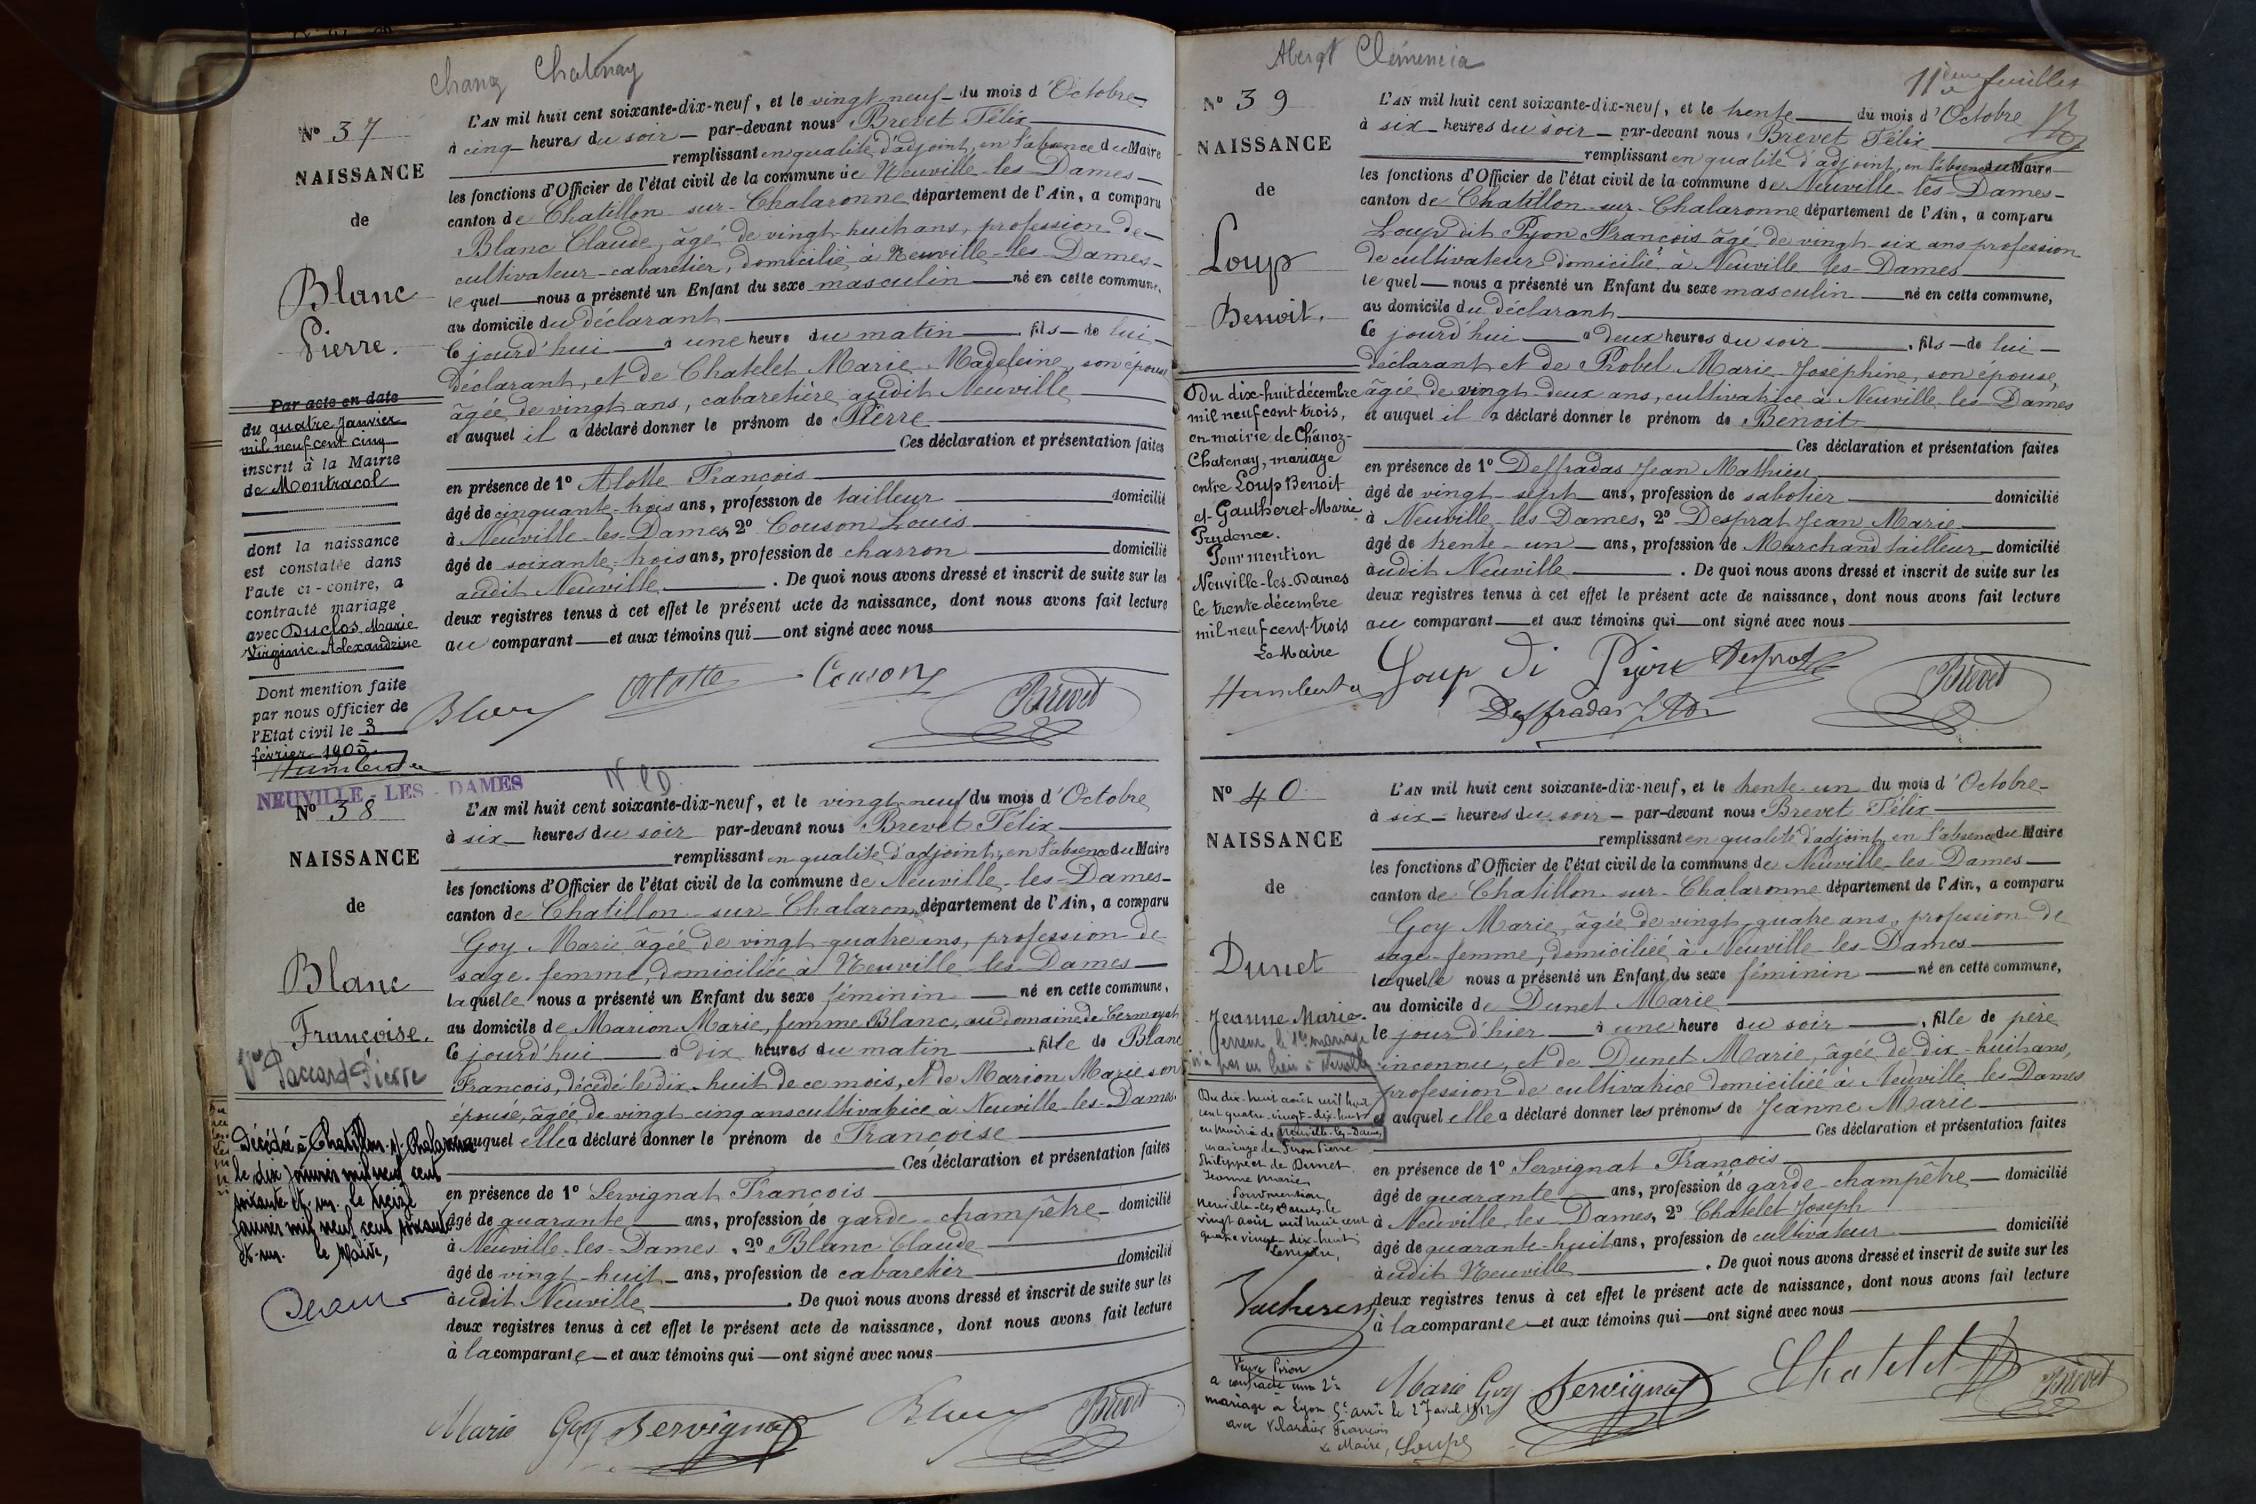 Chanoz Chatenay
Nº 37
NAISSANCE
de
Blanc
Pierre.
Par acte en date
du quatre Janvier
mil neuf cent cinq
inscrit à la Mairie
de Montracol
dont la naissance
est constatée dans
l'acte ci-contre, a
contracté mariage
avec Duclos Marie
Virginie Alexandrine
Dont mention faite
par nous officier de
l'Etat civil le 3
février 1905
Humbert
L'AN mil huit cent soixante-dix-neuf, et le vingt-neuf du mois d'Octobre
à cinq heures du soir par-devant nous Brevet Félix
remplissant en qualité d'adjoint, en l'absence du Maire
les fonctions d'Officier de l'état civil de la commune de Neuville-les-Dames
canton de Chatillon-sur-Chalaronne département de l'Ain, a comparu
Blanc Claude, âgé de vingt-huit ans, profession de
cultivateur-cabaretier, domicilié à Neuville-les-Dames
lequel nous a présenté un Enfant du sexe masculin né en cette commune,
au domicile du déclarant
ce jourd'hui à une heure du matin, fils de lui
déclarant, et de Chatelet Marie-Madeleine, son épouse
âgée de vingt ans, cabaretière audit Neuville
et auquel il a déclaré donner le prénom de Pierre
Ces déclaration et présentation faites
en présence de 1º Alotte François
âgé de cinquante-trois ans, profession de tailleur domicilié
à Neuville-les-Dames, 2º Couson Louis
âgé de soixante-trois ans, profession de charron domicilié
audit Neuville. De quoi nous avons dressé et inscrit de suite sur les
deux registres tenus à cet effet le présent acte de naissance, dont nous avons fait lecture
au comparant et aux témoins qui ont signé avec nous
Blanc Alotte Couson Brevet
NEUVILLE-LES-DAMES
N l D.
Nº 38
NAISSANCE
de
Blanc
Françoise.
Vve Paccard Pierre
Décédée à Chatillon-s/-Chalaronne
le dix janvier mil neuf cent
soixante-et-un. Le treize
janvier mil neuf cent soixante
et-un. Le Maire,
L'AN mil huit cent soixante-dix-neuf, et le vingt-neuf du mois d'Octobre
à six heures du soir par-devant nous Brevet Félix
remplissant en qualité d'adjoint, en l'absence du Maire
les fonctions d'Officier de l'état civil de la commune de Neuville-les-Dames
canton de Chatillon-sur-Chalaronne département de l'Ain, a comparu
Goy Marie âgée de vingt-quatre ans, profession de
sage-femme, domiciliée à Neuville-les-Dames
laquelle nous a présenté un Enfant du sexe féminin né en cette commune,
au domicile de Marion Marie, femme Blanc, au domaine de
ce jourd'hui à dix heures du matin, fille de Blanc
François, décédé le dix-huit de ce mois, et de Marion Marie son
épouse, âgée de vingt-cinq ans cultivatrice à Neuville-les-Dames
et auquel elle a déclaré donner le prénom de Françoise
Ces déclaration et présentation faites
en présence de 1º Servignat François
âgé de quarante ans, profession de garde-champêtre domicilié
à Neuville-les-Dames, 2º Blanc Claude
âgé de vingt-huit ans, profession de cabaretier domicilié
audit Neuville. De quoi nous avons dressé et inscrit de suite sur les
deux registres tenus à cet effet le présent acte de naissance, dont nous avons fait lecture
à la comparante et aux témoins qui ont signé avec nous
Marie Goy Servignat Blanc Brevet
Clémencia
11ème feuillet
Nº 39
NAISSANCE
de
Loup
Benoit.
Du dix-huit décembre
mil neuf cent trois,
en mairie de Chanoz-
Chatenay, mariage
entre Loup Benoit
et Gautheret Marie
Prudence.
Pour mention
Neuville-les-Dames
le trente décembre
mil neuf cent-trois
Le Maire
Humbert
L'AN mil huit cent soixante-dix-neuf, et le trente du mois d'Octobre
à six heures du soir par-devant nous Brevet Félix
remplissant en qualité d'adjoint, en l'absence du Maire
les fonctions d'Officier de l'état civil de la commune de Neuville-les-Dames
canton de Chatillon-sur-Chalaronne département de l'Ain, a comparu
Loup dit Pyon François âgé de vingt-six ans profession
de cultivateur domicilié à Neuville-les-Dames
lequel nous a présenté un Enfant du sexe masculin né en cette commune,
au domicile du déclarant
ce jourd'hui à deux heures du soir, fils de lui
déclarant et de Probel Marie-Joséphine, son épouse,
âgée de vingt-deux ans, cultivatrice à Neuville-les-Dames
et auquel il a déclaré donner le prénom de Benoit
Ces déclaration et présentation faites
en présence de 1º Deffradas Jean Mathieu
âgé de vingt-sept ans, profession de sabotier domicilié
à Neuville-les-Dames, 2º Desprat Jean Marie
âgé de trente-un ans, profession de Marchand tailleur domicilié
audit Neuville. De quoi nous avons dressé et inscrit de suite sur les
deux registres tenus à cet effet le présent acte de naissance, dont nous avons fait lecture
au comparant et aux témoins qui ont signé avec nous
Loup di Desprat Brevet
Deffradas
Nº 40
NAISSANCE
de
Dunet
Jeanne Marie.
erreur le 1er mariage
n'a pas eu lieu à Neuville
Du dix-huit août mil huit
cent quatre-vingt-dix-huit
en mairie de Neuville-les-Dames
mariage de Piron Pierre
Philippe et de Dunet
Jeanne Marie
Pour mention
Neuville-les-Dames le
vingt août mil huit cent
quatre vingt-dix-huit
Le Maire,
Veuve Piron
a contracté un 2e
mariage à Lyon 5e arrt le 27 avril 1912
avec François
Le Maire, Loup
L'AN mil huit cent soixante-dix-neuf, et le trente-un du mois d'Octobre
à six heures du soir par-devant nous Brevet Félix
remplissant en qualité d'adjoint, en l'absence du Maire
les fonctions d'Officier de l'état civil de la commune de Neuville-les-Dames
canton de Chatillon-sur-Chalaronne département de l'Ain, a comparu
Goy Marie, âgée de vingt-quatre ans, profession de
sage-femme, domiciliée à Neuville-les-Dames
laquelle nous a présenté un Enfant du sexe féminin né en cette commune,
au domicile de Dunet Marie
le jour d'hier à une heure du soir, fille de père
inconnu, et de Dunet Marie, âgée de dix-huit ans,
profession de cultivatrice domiciliée à Neuville-les-Dames
et auquel elle a déclaré donner les prénoms de Jeanne Marie
Ces déclaration et présentation faites
en présence de 1º Servignat François
âgé de quarante ans, profession de garde-champêtre domicilié
à Neuville-les-Dames, 2º Chatelet Joseph
âgé de quarante-huit ans, profession de cultivateur domicilié
audit Neuville. De quoi nous avons dressé et inscrit de suite sur les
deux registres tenus à cet effet le présent acte de naissance, dont nous avons fait lecture
à la comparante et aux témoins qui ont signé avec nous
Marie Goy Servignat Chatelet Brevet